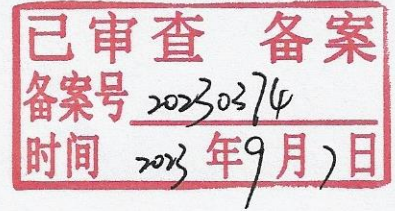 已审查 备案
备案号 20230374
时间 2023 年9月7日